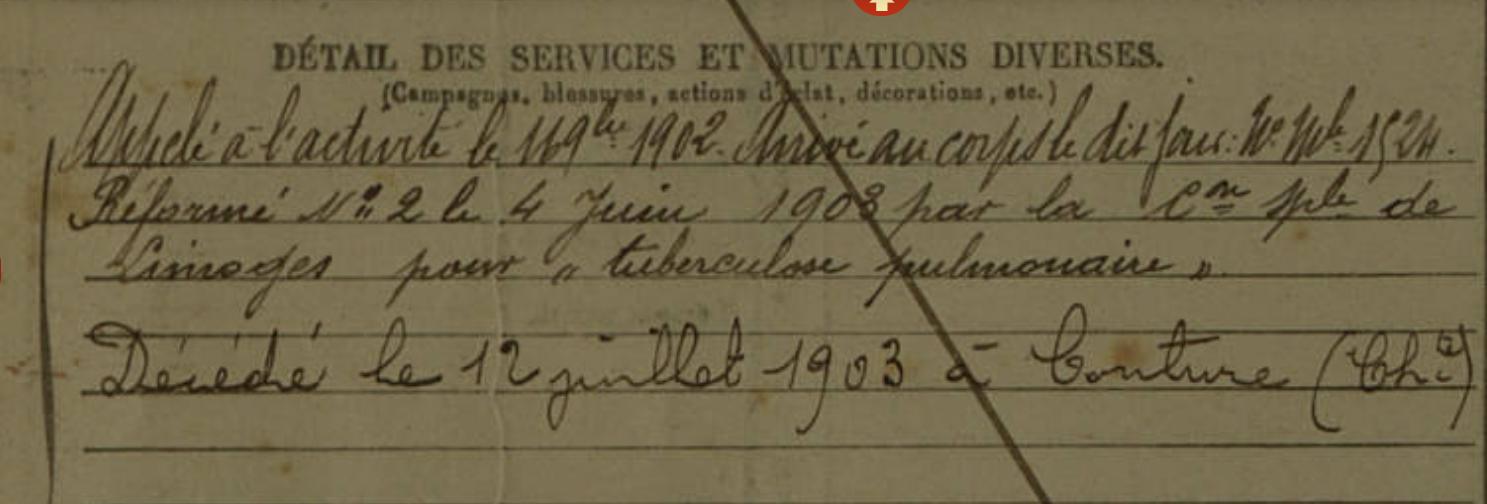 DÉTAIL DES SERVICES ET MUTATIONS DIVERSES.
(Campagnes, blessures, actions d'éclat, décorations, etc.)
Appelé à l'activité le 9bre 1902. Arrivé au corps le dit jour. No Mle 1524.
Réformé No 2 le 4 Juin 1903 par la Con Sple de
Limoges pour " tuberculose pulmonaire "
Décédé le 12 juillet 1903 à Couture (Chte)